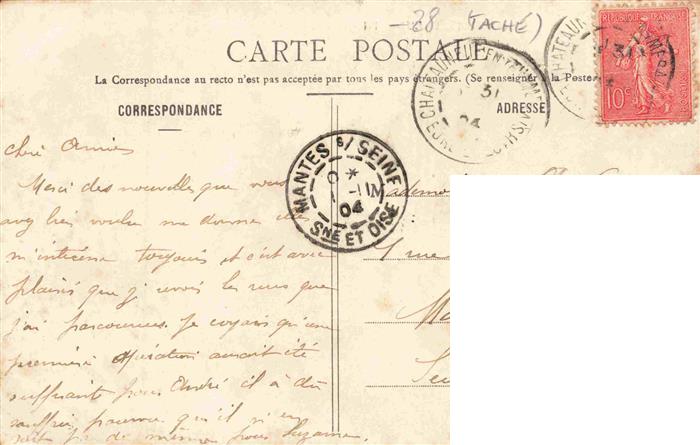 28 (TACHÉ)
CARTE POSTALE
La Correspondance au recto n'est pas acceptée par tous les pays étrangers. (Se renseigner à la Poste
CORRESPONDANCE
ADRESSE
RÉPUBLIQUE FRANÇAISE
10c
CHATEAUNEUF-EN-THYMERAIS
31
04
EURE
MANTES S/ SEINE
04
SNE ET OISE
chère Amies
Merci des nouvelles que vous
avez bien voulu me donner elles
m'intéresse toujours et c'est avec
plaisir que j'ai revois les rues que
j'ai parcourues. Je croyais qu'une
première opération aurait été
suffisante pour André il a dû
souffrir, pourvu qu'il n'en
soit pas de même pour Suzanne.
ademo
rue
Ma